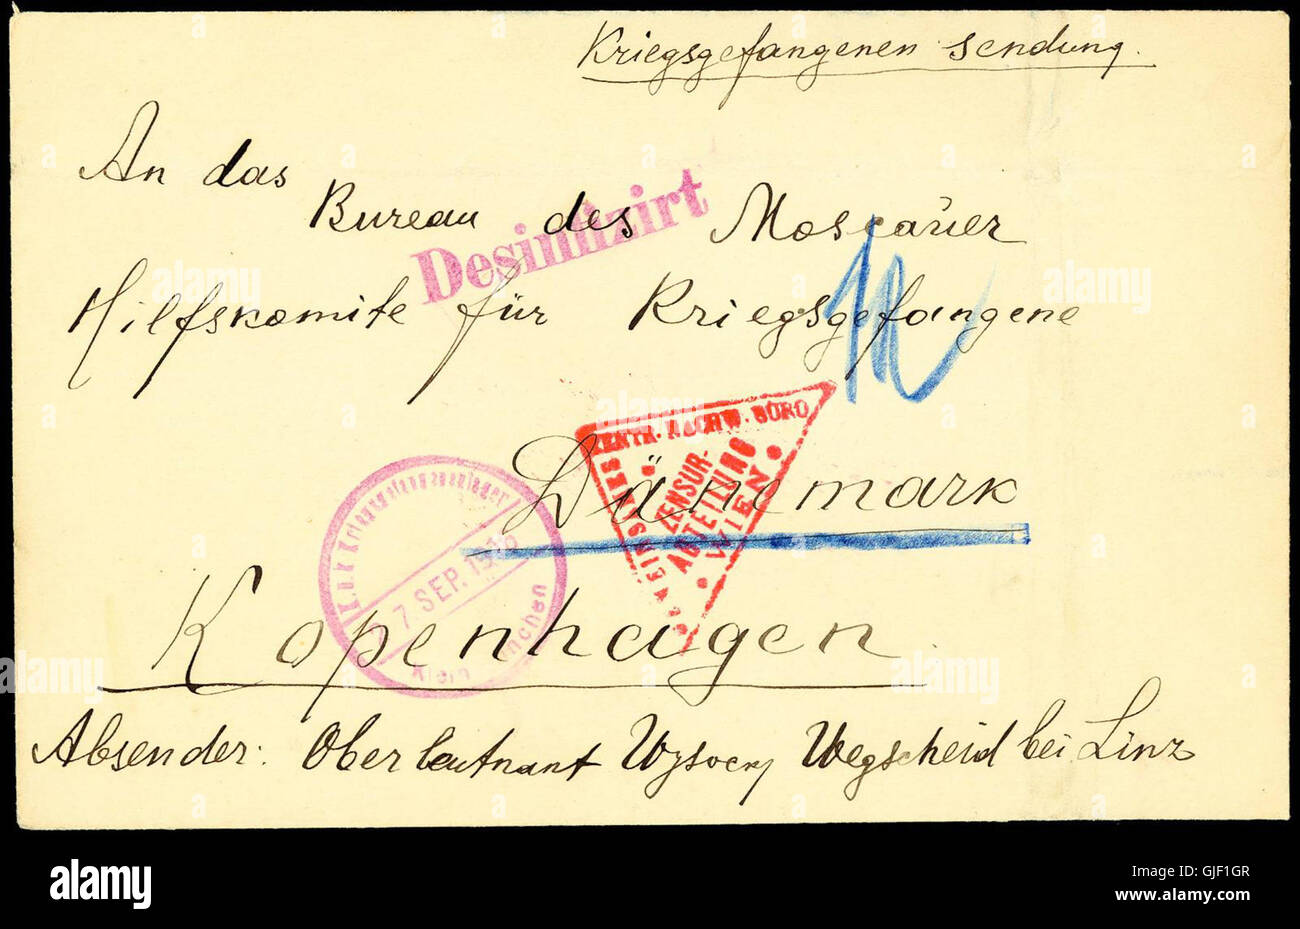 Kriegsgefangenen sendung.
An das
Bureau des Moscauer
Desinfizirt
Hilfskomite für Kriegsgefangene
ZENTR. NACHW. BÜRO
ZENSUR-
ABTEILUNG
WIEN
Dänemark
K.u.K Kriegsgefangenenlager
7 SEP. 1916
Klein München
Kopenhagen.
Absender: Oberleutnant Wysocky Wegscheid bei Linz
alamy
Image ID: GJF1GR
www.alamy.com